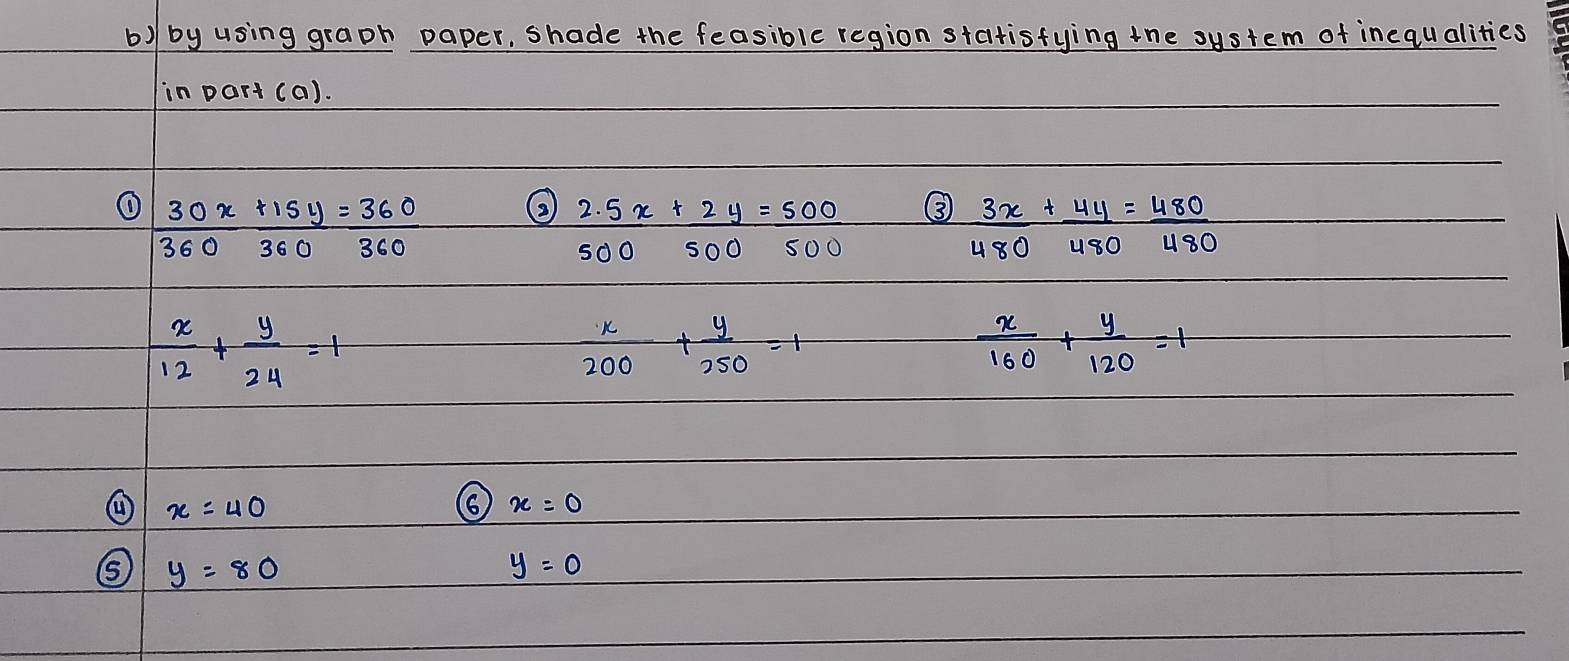 b) by using graph paper, shade the feasible region statisfying the system of inequalities
in part (a).
① 30x/360 + 15y/360 = 360/360 ② 2.5x/500 + 2y/500 = 500/500 ③ 3x/480 + 4y/480 = 480/480
x/12 + y/24 = 1 x/200 + y/250 = 1 x/160 + y/120 = 1
④ x = 40 ⑥ x = 0
⑤ y = 80 y = 0